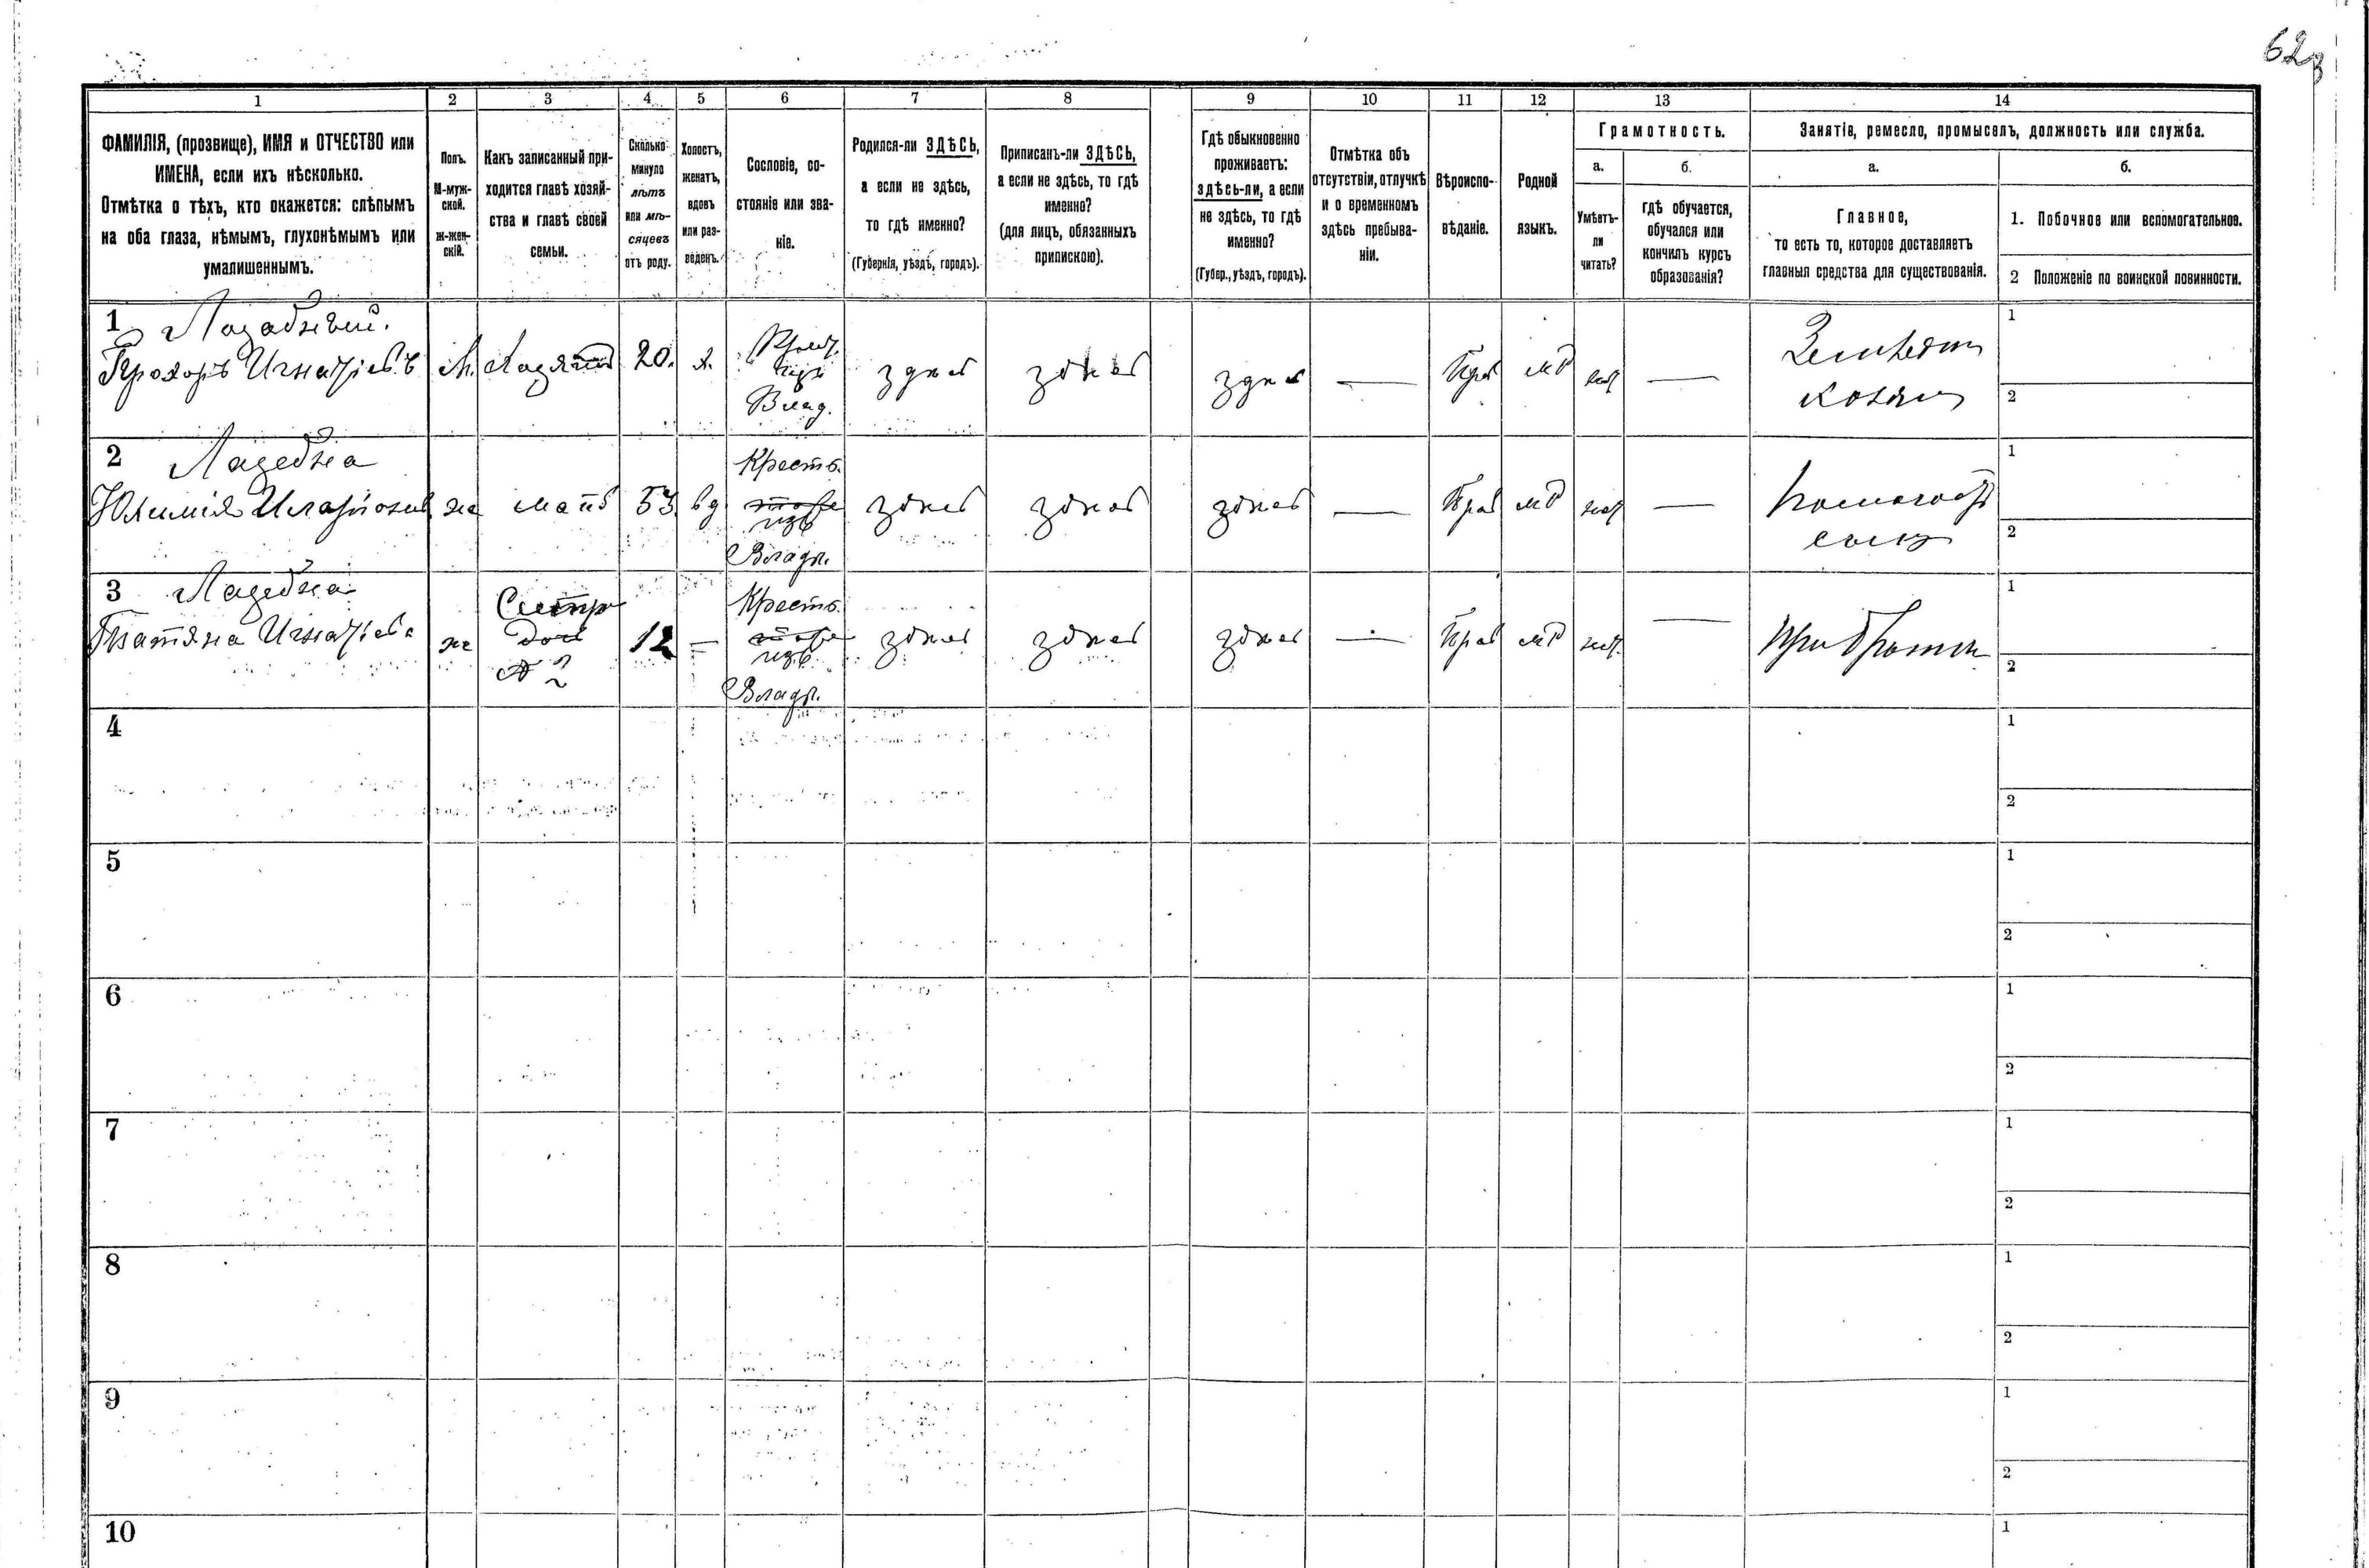 62
1 2 3 4 5 6 7 8 9 10 11 12 13 14
ФАМИЛІЯ, (прозвище), ИМЯ и ОТЧЕСТВО или
ИМЕНА, если ихъ нѣсколько.
Отмѣтка о тѣхъ, кто окажется: слѣпымъ
на оба глаза, нѣмымъ, глухонѣмымъ или
умалишеннымъ.
Полъ.
М-муж-
ской.
ж-жен-
скій.
Какъ записанный при-
ходится главѣ хозяй-
ства и главѣ своей
семьи.
Сколько
минуло
лѣтъ
или мѣ-
сяцевъ
отъ роду.
Холостъ,
женатъ,
вдовъ
или раз-
веденъ.
Сословіе, со-
стояніе или зва-
ніе.
Родился-ли ЗДѢСЬ,
а если не здѣсь,
то гдѣ именно?
(Губернія, уѣздъ, городъ).
Приписанъ-ли ЗДѢСЬ,
а если не здѣсь, то гдѣ
именно?
(для лицъ, обязанныхъ
припискою).
Гдѣ обыкновенно
проживаетъ:
здѣсь-ли, а если
не здѣсь, то гдѣ
именно?
(Губер., уѣздъ, городъ).
Отмѣтка объ
отсутствіи, отлучкѣ
и о временномъ
здѣсь пребыва-
ніи.
Вѣроиспо-
вѣданіе.
Родной
языкъ.
Грамотность.
а.
Умѣетъ-
ли
читать?
б.
гдѣ обучается,
обучался или
кончилъ курсъ
образованія?
Занятіе, ремесло, промыселъ, должность или служба.
а.
Главное,
то есть то, которое доставляетъ
главныя средства для существованія.
б.
1. Побочное или вспомогательное.
2 Положеніе по воинской повинности.
1
Прохоръ Игнатіевъ
М.
Хозяинъ
20.
х.
Крест.
изъ
Влад.
здѣсь
здѣсь
здѣсь
—
Прав
мР
нѣт
—
Земледѣл
хозяин
1
2
2
Юхимія Иларіонов
ж
мать
53
вд
Кресть.
изъ
Владѣл.
здѣсь
здѣсь
здѣсь
—
Прав
мР
нѣт
—
1
2
3
Татіяна Игнатіева
ж
Сестра
дочь
№ 2
12
—
Кресть.
изъ
Владѣл.
здѣсь
здѣсь
здѣсь
—
Прав
мР
нѣт.
—
При братѣ
1
2
4
1
2
5
1
2
6
1
2
7
1
2
8
1
2
9
1
2
10
1